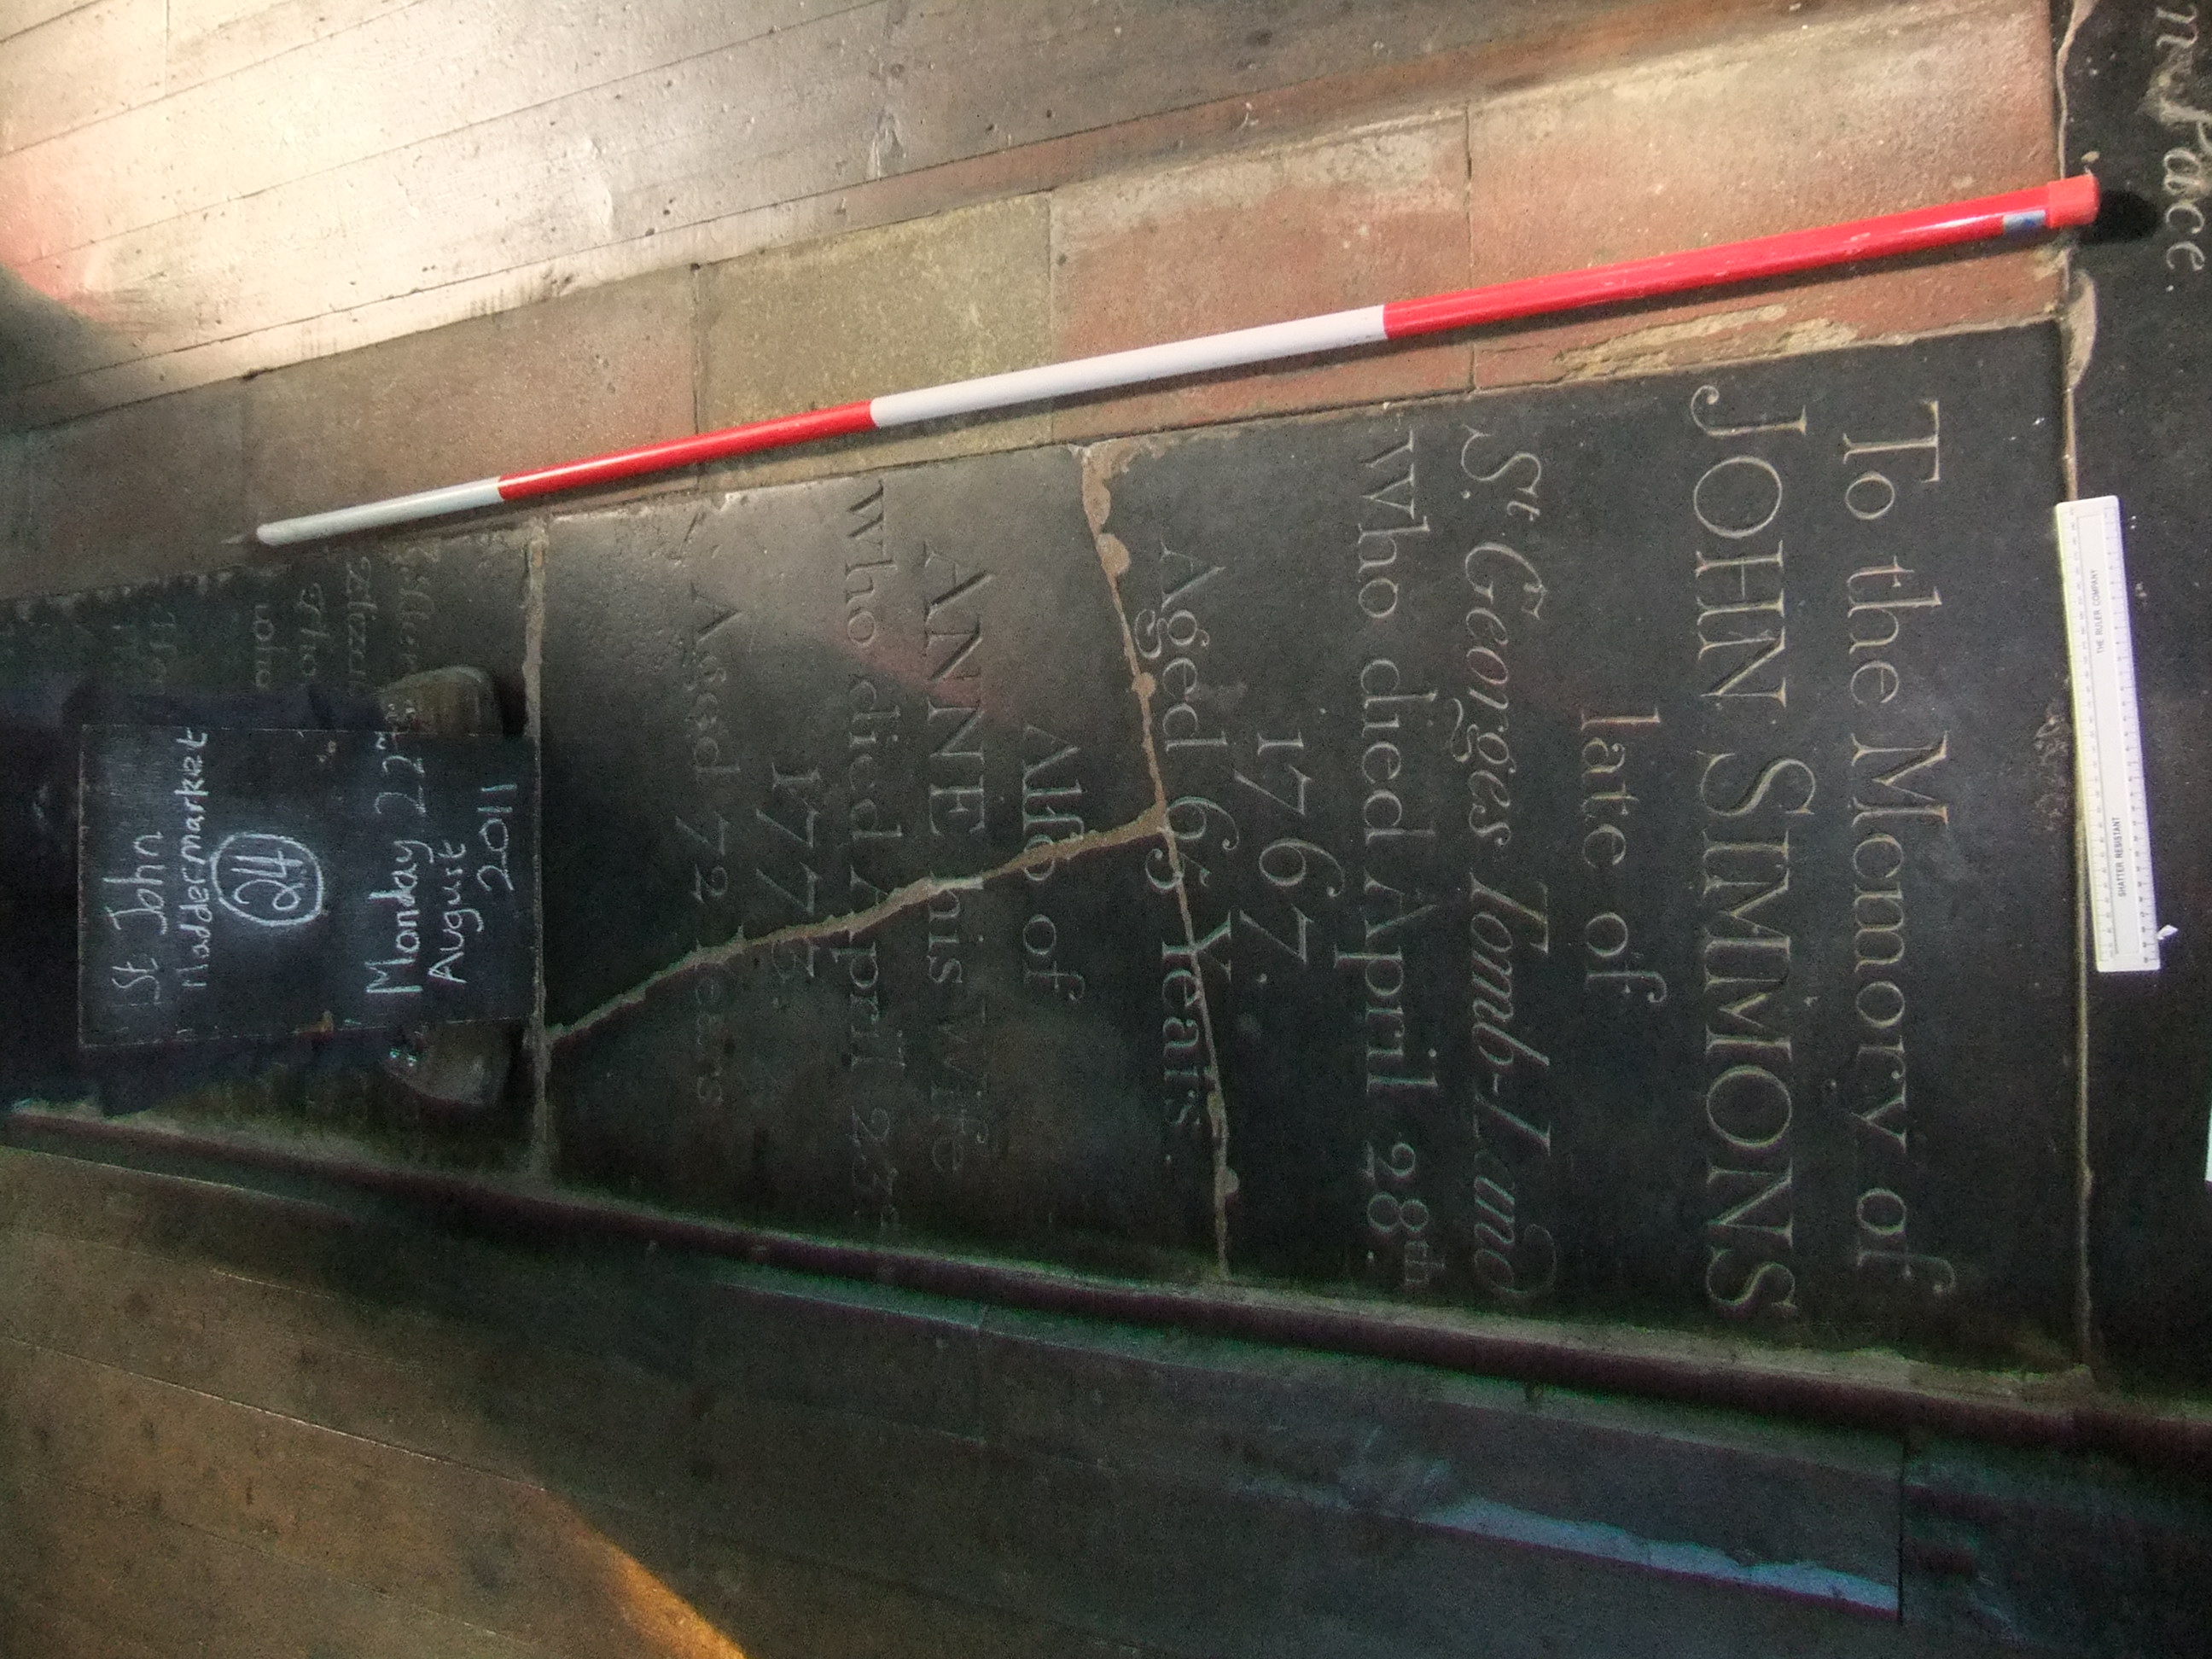 To the Memory of
JOHN SIMMONS
late of
St. Georges Tomb-Land
Who died April 28th.
1767.
Aged 65 Years.
Also of
ANNE his Wife
Who died April 23d
1773.
Aged 72 Years
St John
Maddermarket
24
Monday 22nd
August
2011
THE RULER COMPANY
SHATTER RESISTANT
Pace